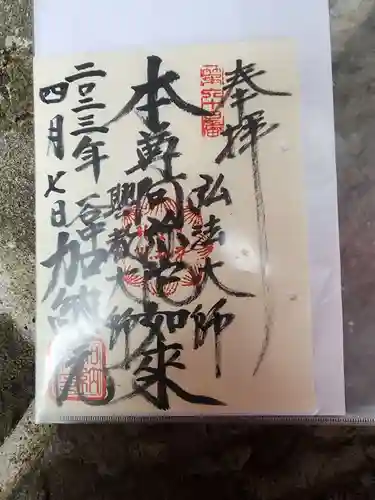 奉拝
弘法大師
本尊阿弥陀如来
興教大師
二〇二三年
四月七日
加納院